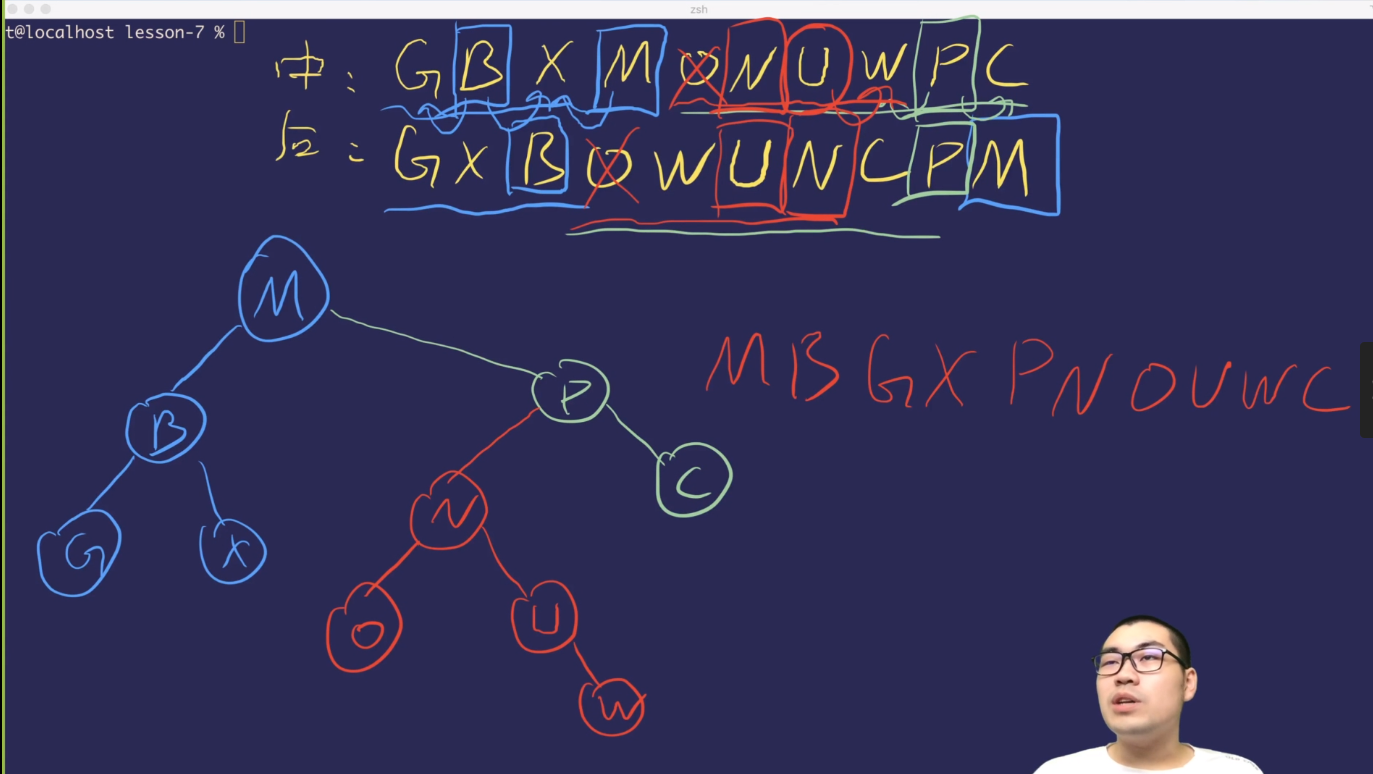 zsh
t@localhost lesson-7 %
中: G B X M O N U W P C
后: G X B O W U N C P M
M
P
M B G X P N O U W C
B
C
N
G
X
O
U
W